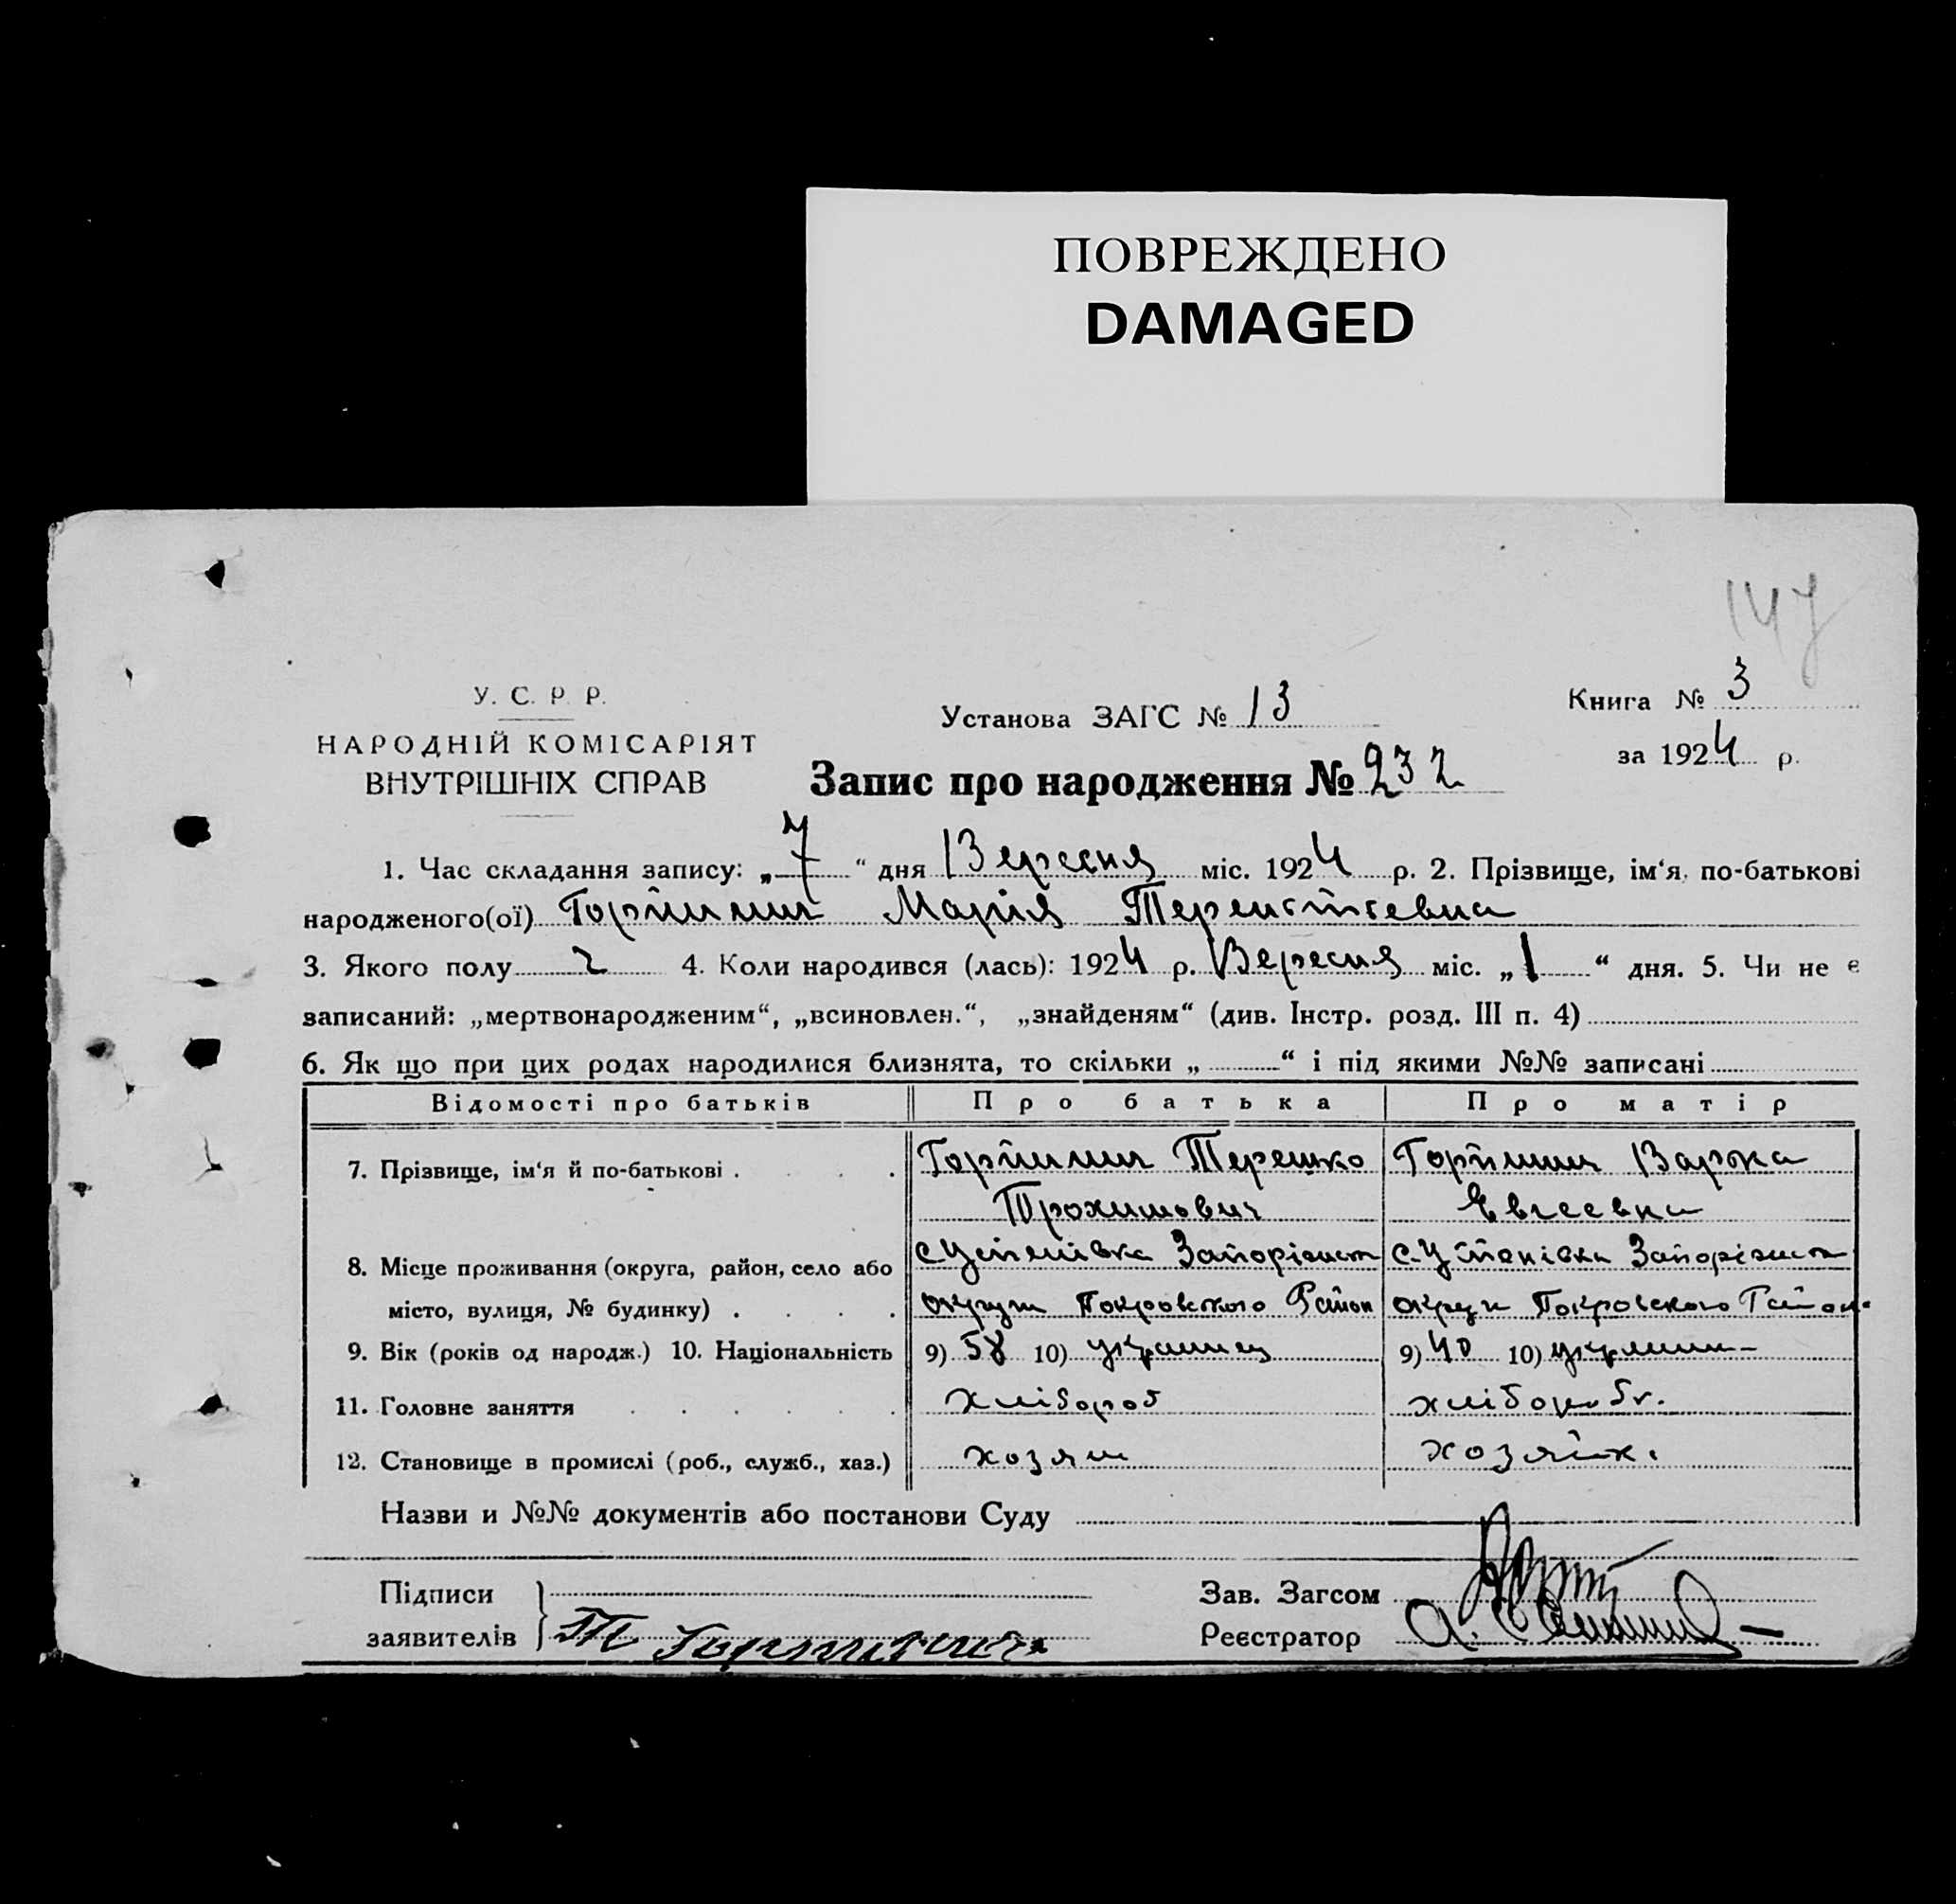 ПОВРЕЖДЕНО
DAMAGED
147
У. С. Р. Р.
НАРОДНІЙ КОМІСАРІЯТ
ВНУТРІШНІХ СПРАВ
Установа ЗАГС № 13
Книга № 3
за 1924 р.
Запис про народження № 232
1. Час складання запису: „ 7 “ дня Вересня міс. 1924 р. 2. Прізвище, ім‘я, по-батькові
народженого(ої) Марія Терентієвна
3. Якого полу 4. Коли народився (лась): 1924 р. Вересня міс. „ 1 “ дня. 5. Чи не є
записаний: „мертвонародженим“, „всиновлен.“, „знайденям“ (див. Інстр. розд. III п. 4)
6. Як що при цих родах народилися близнята, то скільки „ “ і під якими №№ записані
Відомості про батьків Про батька Про матір
7. Прізвище, ім‘я й по-батькові . . . . Терешко Варка
Трохимович Евгеевна
8. Місце проживання (округа, район, село або
місто, вулиця, № будинку) . . . . округи Покровського Район округи Покровского Район.
9. Вік (років од народж.) 10. Національність 9) 58 10) украинец 9) 40 10)
11. Головне заняття . . . . . . хлібороб
12. Становище в промислі (роб., служб., хаз.) хозяин хозяйк.
Назви и №№ документів або постанови Суду
Підписи
заявителів
Зав. Загсом
Реєстратор